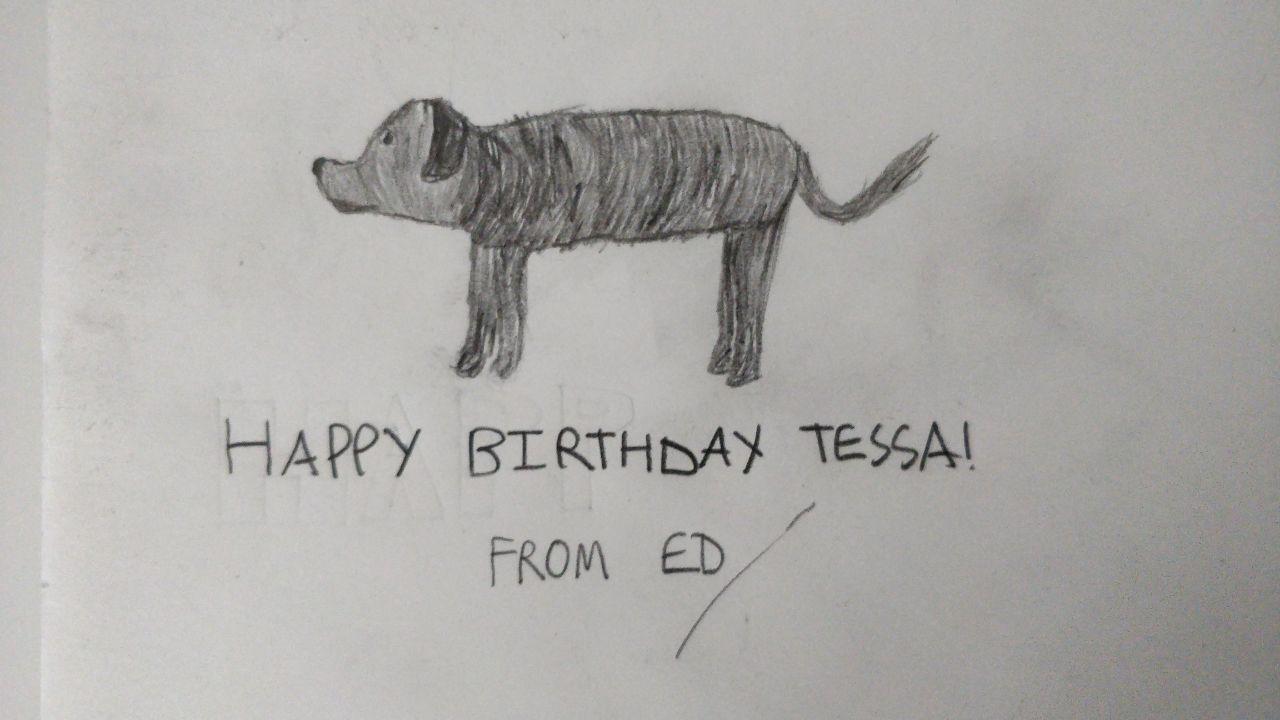 HAPPY BIRTHDAY TESSA!
FROM ED